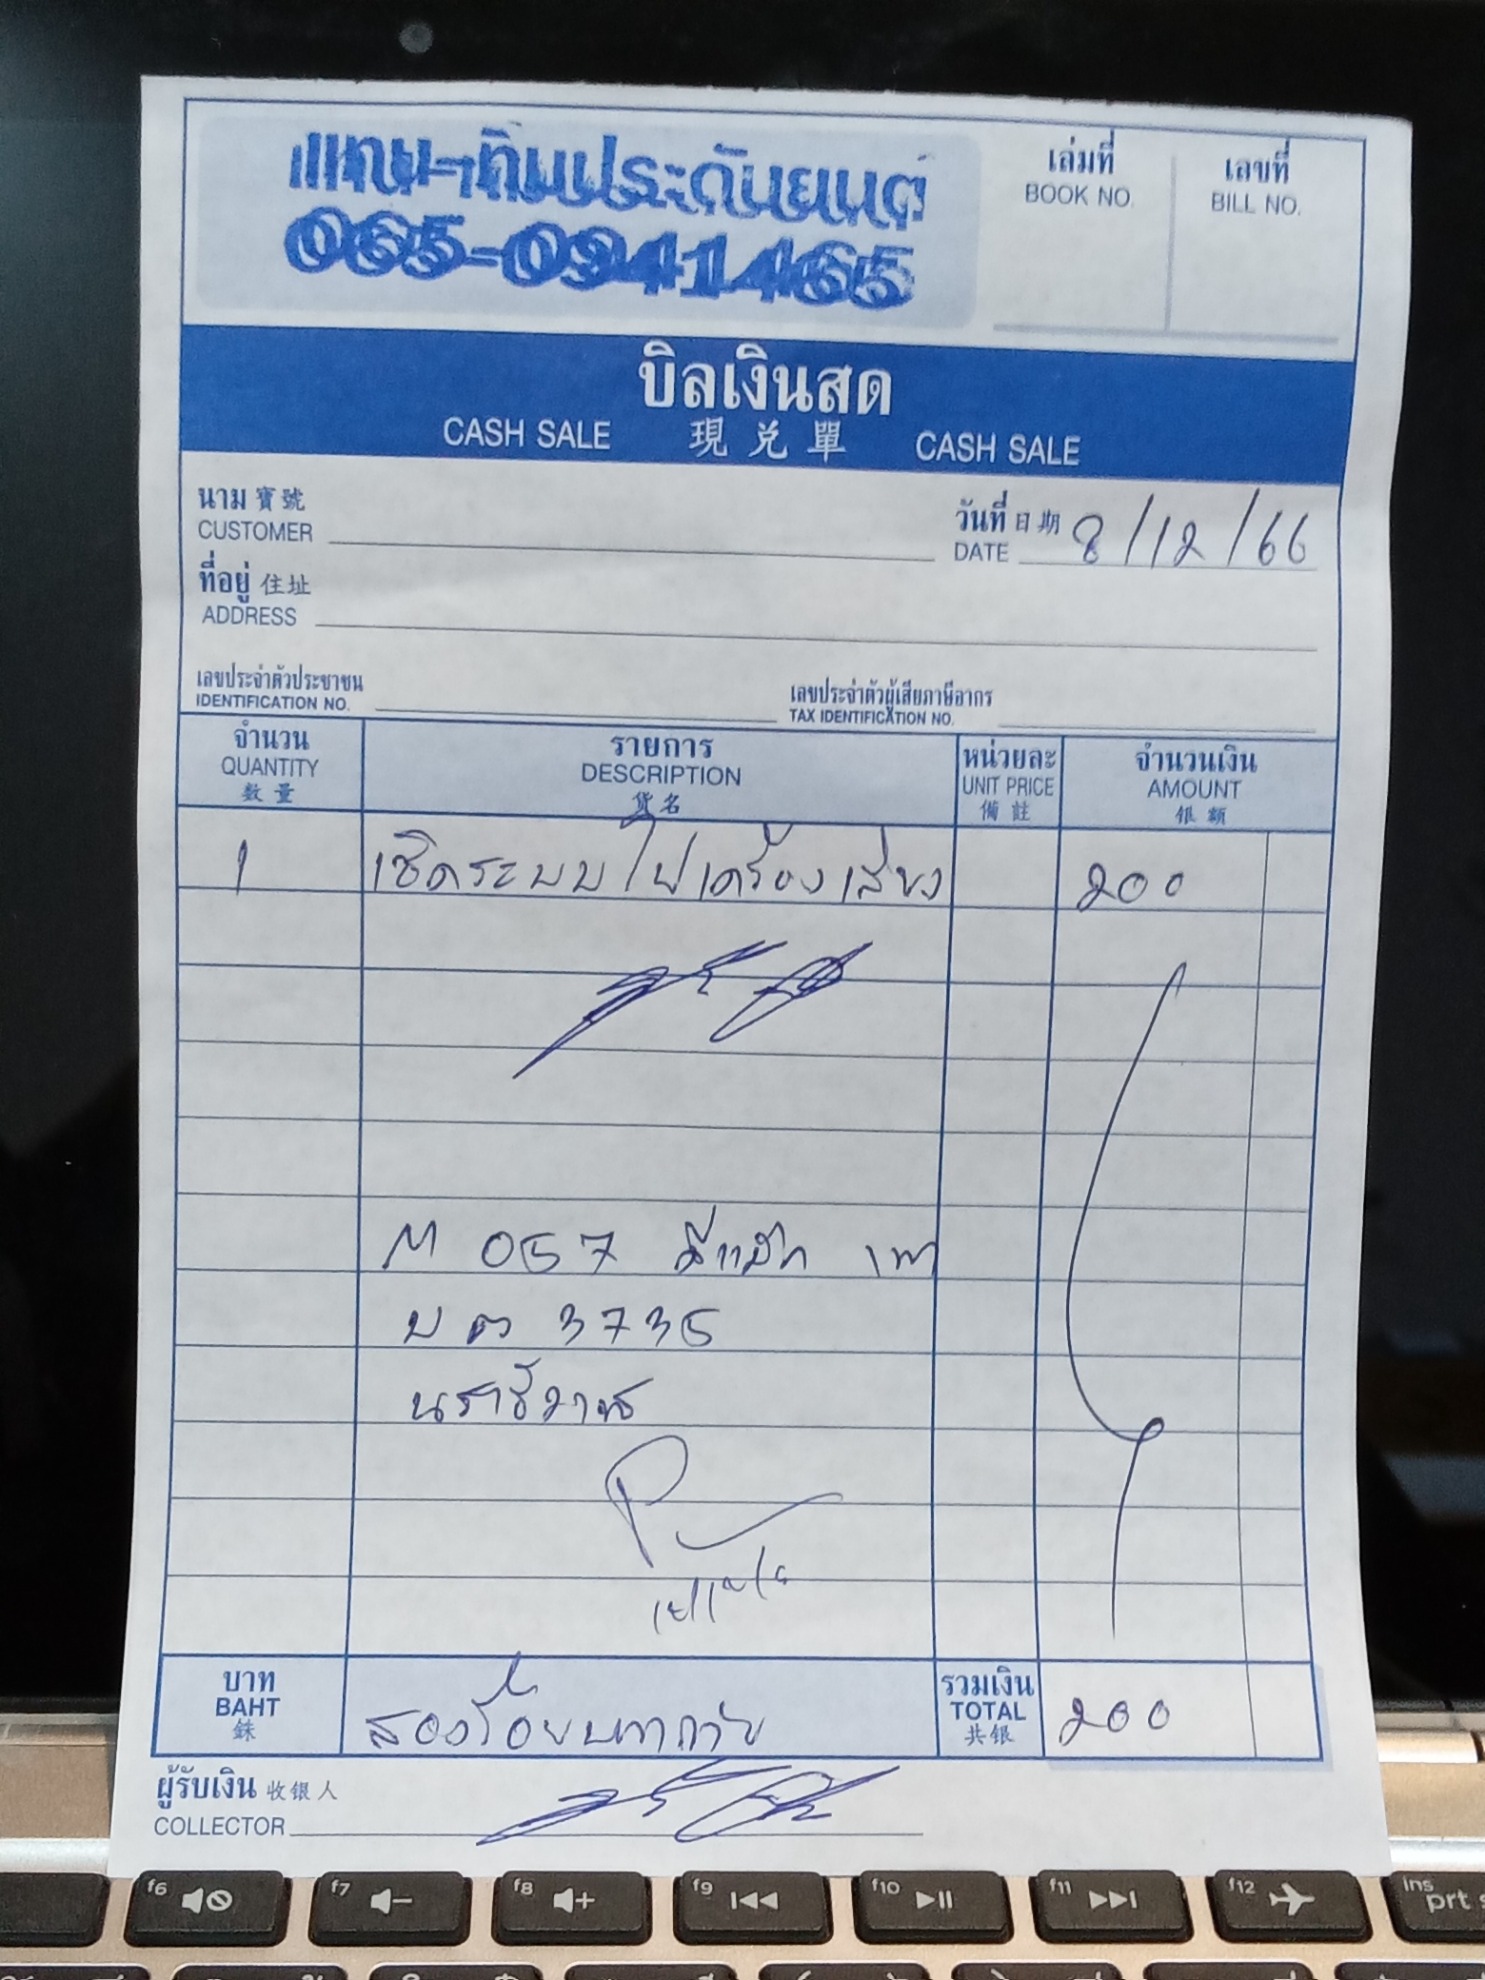 แทน-ทิมประดับยนต์
065-0941465
เล่มที่
BOOK NO.
เลขที่
BILL NO.
บิลเงินสด
CASH SALE 現兌單 CASH SALE
นาม 寶號
CUSTOMER
วันที่ 日期 8/12/66
DATE
ที่อยู่ 住址
ADDRESS
เลขประจำตัวประชาชน
IDENTIFICATION NO.
เลขประจำตัวผู้เสียภาษีอากร
TAX IDENTIFICATION NO.
จำนวน รายการ หน่วยละ จำนวนเงิน
QUANTITY DESCRIPTION UNIT PRICE AMOUNT
数量 貨名 備註 银额
1 เช็คระบบไฟเครื่องเสียง 200
M 057 ดีแม็ก เทา
บต 3735
นราธิวาส
บาท สองร้อยบาทถ้วน รวมเงิน 200
BAHT TOTAL
銖 共银
ผู้รับเงิน 收银人
COLLECTOR
f6 f7 f8 f9 f10 f11 f12 ins
prt s